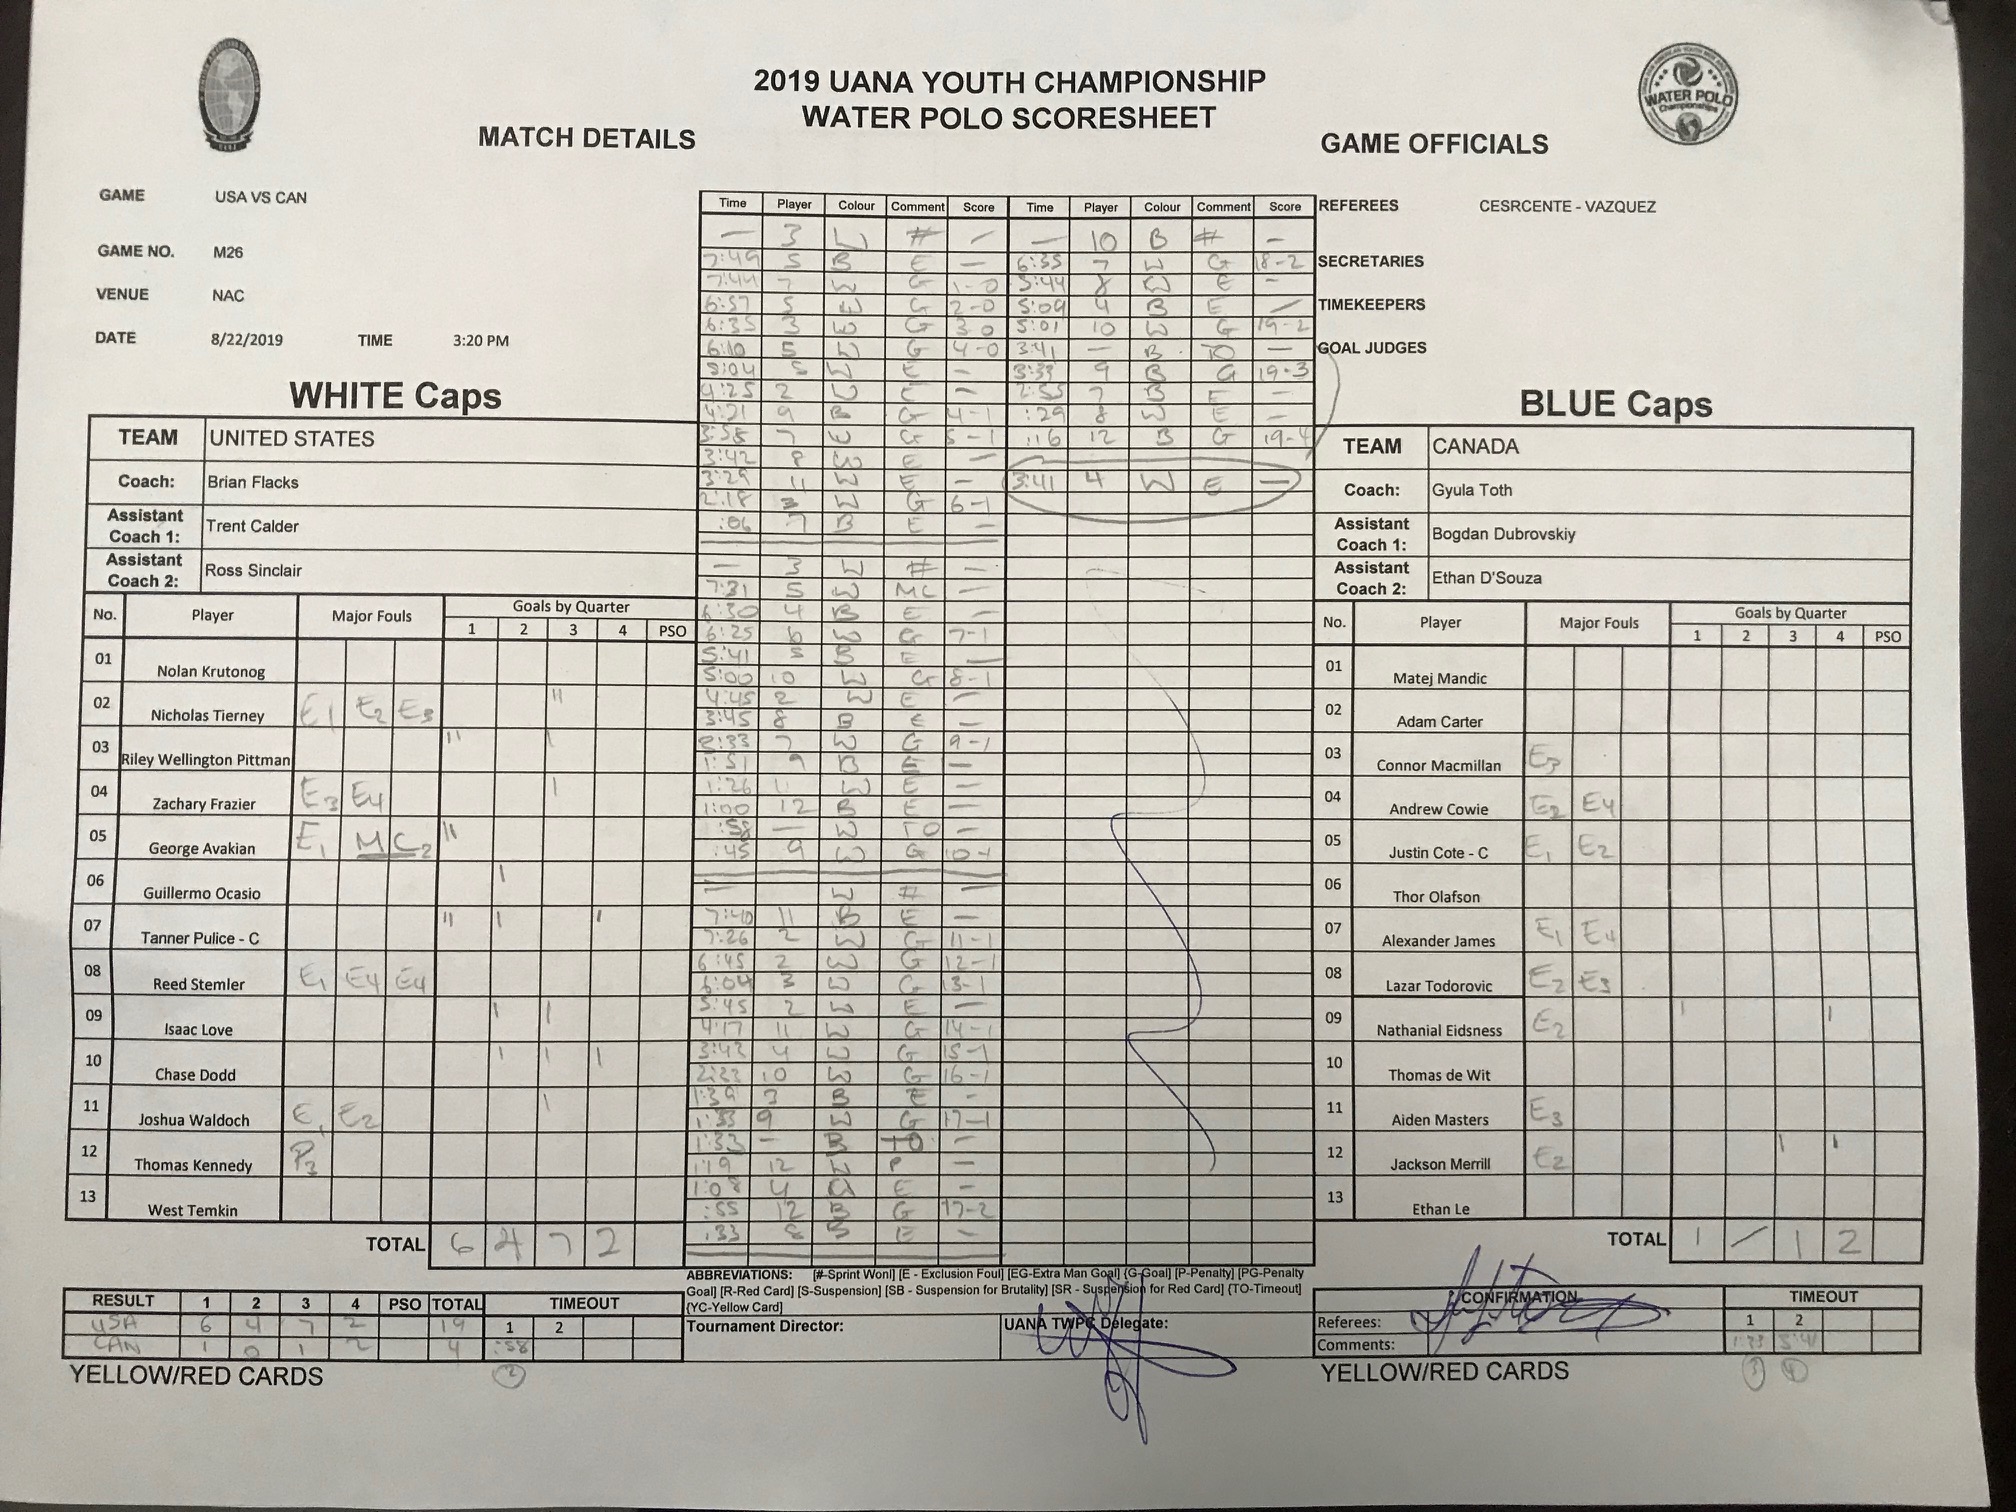 2019 UANA YOUTH CHAMPIONSHIP
WATER POLO SCORESHEET
WATER POLO
Championships
MATCH DETAILS
GAME OFFICIALS
GAME USA VS CAN
GAME NO. M26
VENUE NAC
DATE 8/22/2019 TIME 3:20 PM
REFEREES CESRCENTE - VAZQUEZ
SECRETARIES
TIMEKEEPERS
GOAL JUDGES
WHITE Caps
TEAM UNITED STATES
Coach: Brian Flacks
Assistant Coach 1: Trent Calder
Assistant Coach 2: Ross Sinclair
No. Player Major Fouls Goals by Quarter
1 2 3 4 PSO
01 Nolan Krutonog
02 Nicholas Tierney E1 E2 E3 "
03 Riley Wellington Pittman " |
04 Zachary Frazier E3 E4 |
05 George Avakian E1 MC2 "
06 Guillermo Ocasio |
07 Tanner Pulice - C " | |
08 Reed Stemler E1 E4 E4
09 Isaac Love | |
10 Chase Dodd | | |
11 Joshua Waldoch E1 E2 |
12 Thomas Kennedy P3
13 West Temkin
TOTAL 6 4 7 2
RESULT 1 2 3 4 PSO TOTAL TIMEOUT
1 2
USA 6 4 7 2 19
CAN 1 0 1 2 4 :58
2
YELLOW/RED CARDS
Time Player Colour Comment Score
— 3 W # —
7:49 5 B E —
7:44 7 W G 1-0
6:57 5 W G 2-0
6:35 3 W G 3-0
6:10 5 W G 4-0
5:04 5 W E —
4:25 2 W E —
4:21 9 B G 4-1
3:58 7 W G 5-1
3:42 8 W E —
3:29 11 W E —
2:18 3 W G 6-1
:06 7 B E —
— 3 W # —
7:31 5 W MC —
6:30 4 B E —
6:25 6 W G 7-1
5:41 5 B E —
5:00 10 W G 8-1
4:45 2 W E —
3:45 8 B E —
2:33 7 W G 9-1
1:51 9 B E —
1:26 11 W E —
1:00 12 B E —
:58 — W TO —
:45 9 W G 10-1
— W # —
7:40 11 B E —
7:26 2 W G 11-1
6:45 2 W G 12-1
6:04 3 W G 13-1
5:45 2 W E —
4:17 11 W G 14-1
3:42 4 W G 15-1
2:23 10 W G 16-1
1:39 3 B E —
1:33 9 W G 17-1
1:33 — B TO —
1:19 12 W P —
1:08 4 W E —
:55 12 B G 17-2
:33 8 B E —
Time Player Colour Comment Score
— 10 B # —
6:35 7 W G 18-2
5:44 8 W E —
5:09 4 B E —
5:01 10 W G 19-2
3:41 — B TO —
3:33 9 B G 19-3
2:55 7 B E —
:29 8 W E —
:16 12 B G 19-4
3:41 4 W E —
ABBREVIATIONS: [#-Sprint Wonl] [E - Exclusion Foul] [EG-Extra Man Goal] {G-Goal] [P-Penalty] [PG-Penalty
Goal] [R-Red Card] [S-Suspension] [SB - Suspension for Brutality] [SR - Suspension for Red Card] {TO-Timeout]
{YC-Yellow Card]
Tournament Director:
UANA TWPC Delegate:
BLUE Caps
TEAM CANADA
Coach: Gyula Toth
Assistant Coach 1: Bogdan Dubrovskiy
Assistant Coach 2: Ethan D'Souza
No. Player Major Fouls Goals by Quarter
1 2 3 4 PSO
01 Matej Mandic
02 Adam Carter
03 Connor Macmillan E3
04 Andrew Cowie E2 E4
05 Justin Cote - C E1 E2
06 Thor Olafson
07 Alexander James E1 E4
08 Lazar Todorovic E2 E3
09 Nathanial Eidsness E2 | |
10 Thomas de Wit
11 Aiden Masters E3
12 Jackson Merrill E2 | |
13 Ethan Le
TOTAL 1 / 1 2
CONFIRMATION TIMEOUT
Referees: 1 2
Comments: 1:33 3:41
3 4
YELLOW/RED CARDS